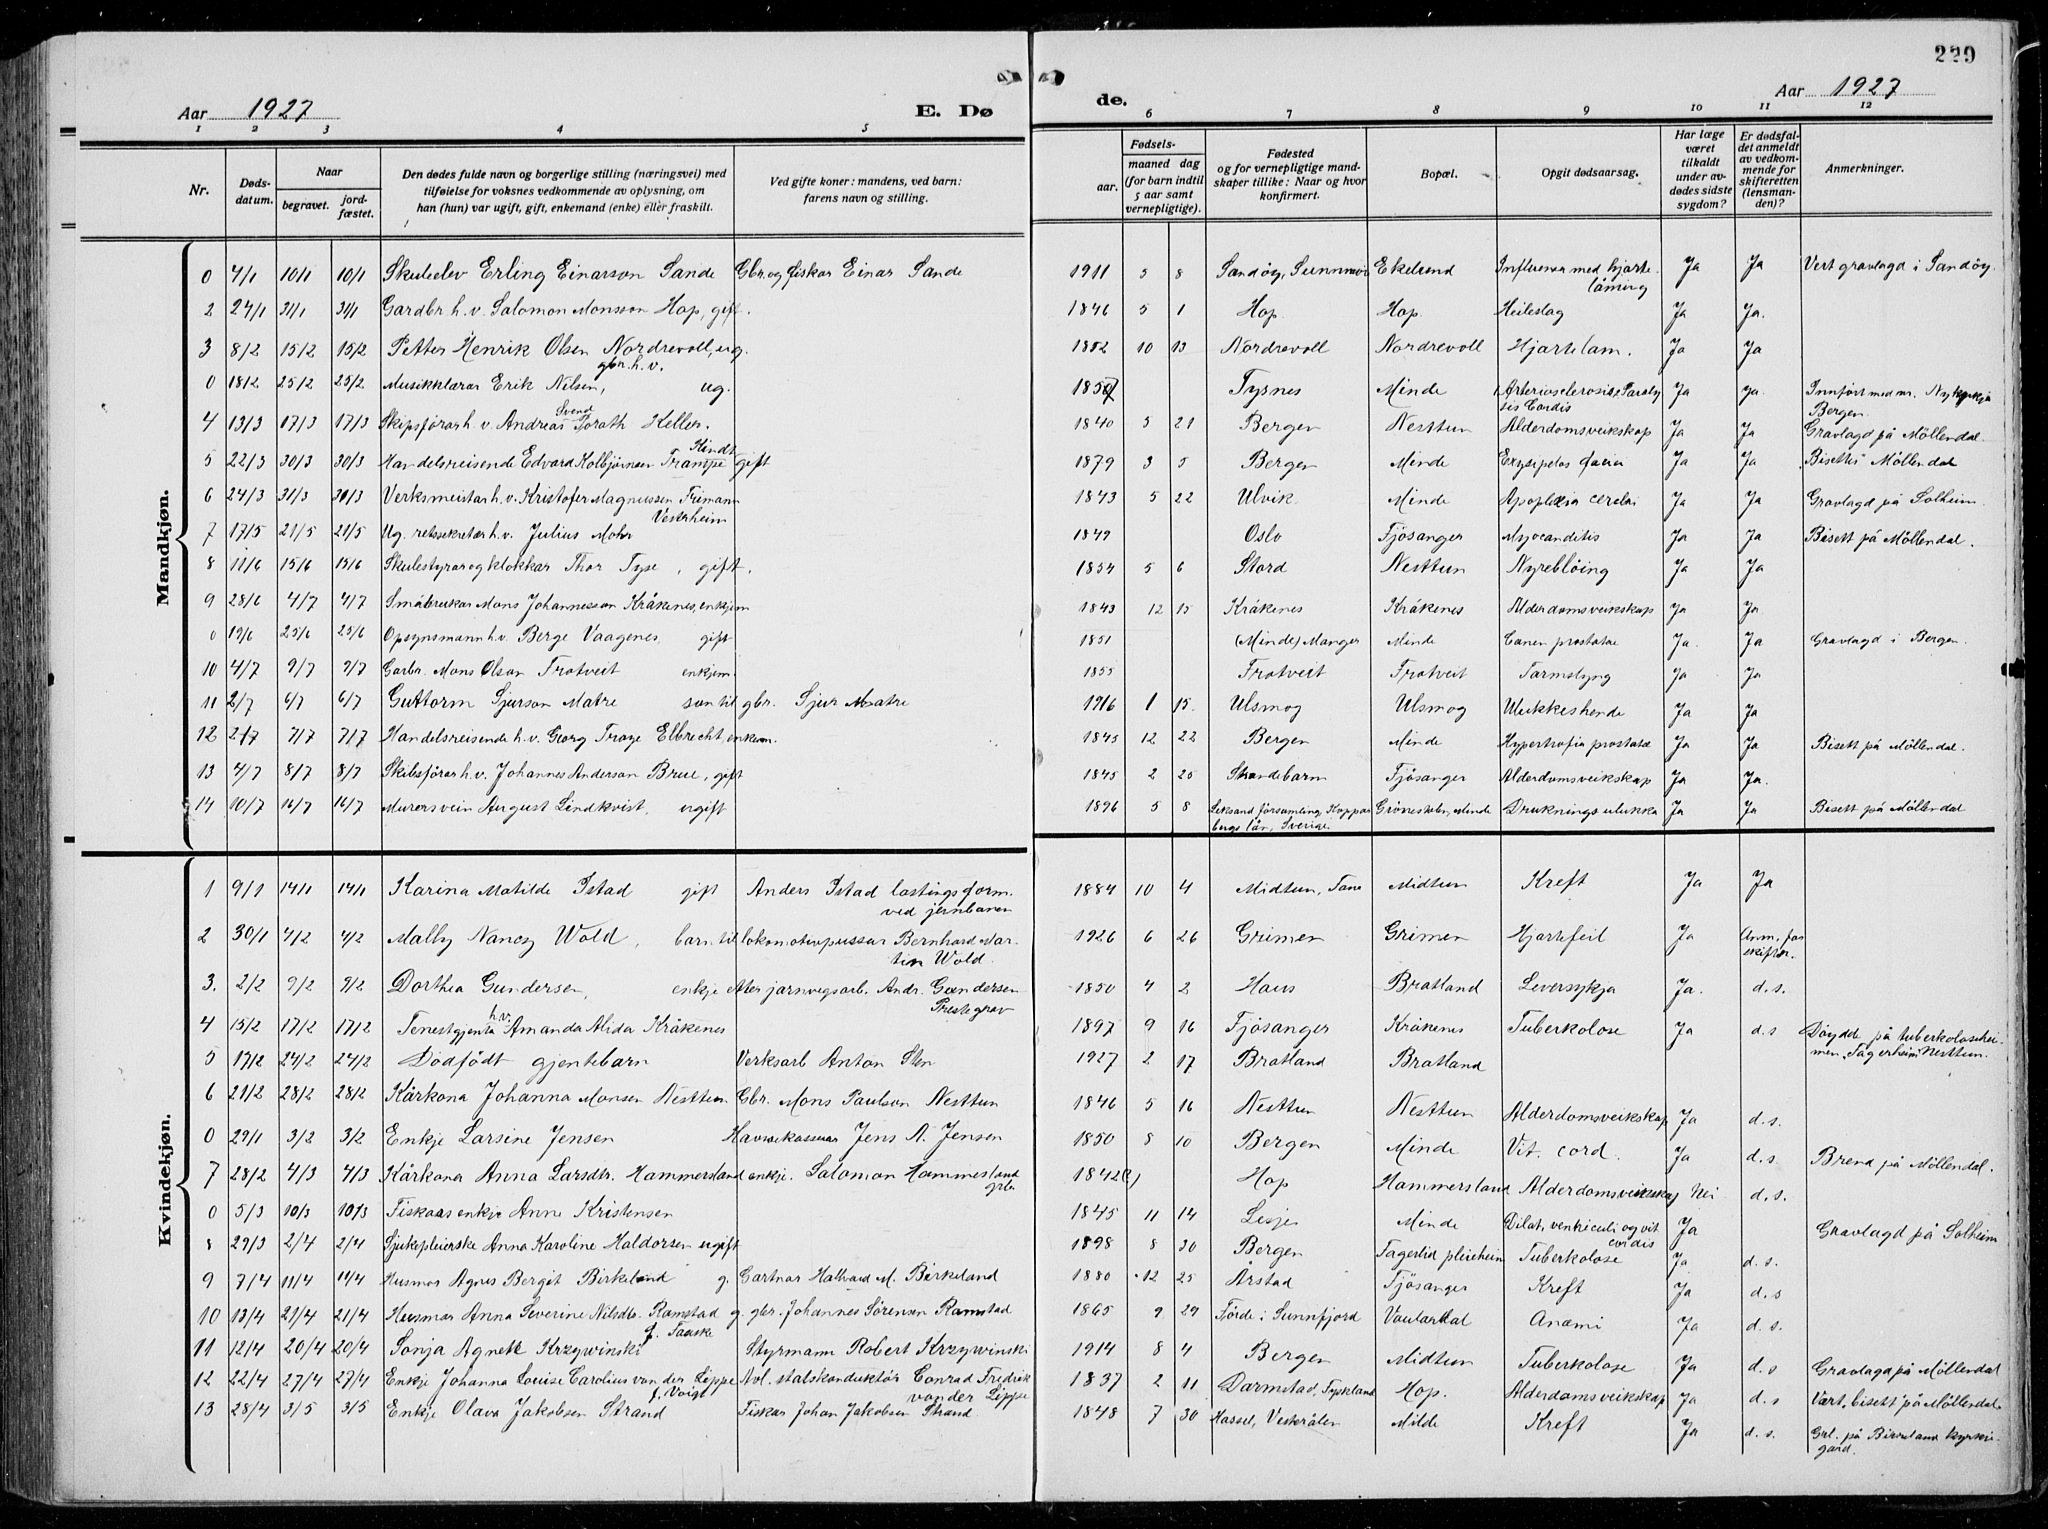 229
Aar 1927 E. Dø
de. Aar 1927
1 2 3 4 5 6 7 8 9 10 11 12
Nr. Døds-datum. Naar begravet. jord-fæstet. Den dødes fulde navn og borgerlige stilling (næringsvei) med tilføielse for voksnes vedkommende av oplysning, om han (hun) var ugift, gift, enkemand (enke) eller fraskilt. Ved gifte koner: mandens, ved barn: farens navn og stilling. Fødsels- aar. maaned dag (for barn indtil 5 aar samt vernepligtige). Fødested og for vernepligtige mandskaper tillike: Naar og hvor konfirmert. Bopæl. Opgit dødsaarsag. Har læge været tilkaldt under avdødes sidste sygdom? Er dødsfaldet anmeldt av vedkommende for skifteretten (lensmanden)? Anmerkninger.
Mandkjøn.
0 4/1 10/1 10/1 Skuleelev Erling Einarson Sande Gbr. og fiskar Einar Sande 1911 5 8 Sandöy, Sunnmör Ekelund Influensa med hjarte-låming Ja Ja Vert gravlagd i Sandöy.
2 24/1 31/1 31/1 Gardbr. h.v. Salomon Monsson Hop, gift. 1846 5 1 Hop Hop Heileslag Ja Ja.
3 8/2 15/2 15/2 Petter Henrik Olsen Nordrevoll, ug. gbr. h.v. 1852 10 13 Nordrevoll Nordrevoll Hjartelam. Ja Ja
0 18/2 25/2 25/2 Musikklærar Erik Nilsen, ug. 1857 Tysnes Minde Arteriosclerosis, Paralysis Cordis Ja Ja. Innfört med nr. Nykyrkja Bergen.
4 13/3 17/3 17/3 Skipsförar h.v. Andreas Svend Forath Keller. 1840 5 21 Bergen Nesttun Alderdomsveikskap Ja Ja Gravlagd på Möllendal.
5 22/3 30/3 30/3 Handelsreisende Edvard Kolbjörnsen Flindt Trampe gift 1879 3 5 Bergen Minde Erysipelas faciei Ja Ja Bisett i Möllendal
6 24/3 31/3 30/3 Verksmeistar h.v. Kristofer Magnussen Frimann Vesterheim 1843 5 22 Ulvik Minde Apoplexia cerebri Ja Ja Gravlagd på Solheim
7 17/5 21/5 21/5 Ug. retssekretær h.v. Julius Mohr 1849 Oslo Fjösanger Myocarditis Ja Ja Bisett på Möllendal.
8 11/6 15/6 15/6 Skulestyrar og klokkar Thor Tyse, gift. 1854 5 6 Stord Nesttun Nyreblöing Ja Ja
9 28/6 4/7 4/7 Småbrukar Mons Johannesson Kråkenes, enkjem 1843 12 15 Kråkenes Kråkenes Alderdomsveikskap Ja Ja.
0 19/6 25/6 25/6 Opsynsmann h.v. Berge Vaagenes, gift 1851 (Minde) Manger Minde Cancer prostatae Ja. Ja Gravlagd i Bergen.
10 4/7 9/7 9/7 Garbr. Mons Olson Trotveit enkjem. 1855 Frotveit Frotveit Tarmslyng Ja Ja
11 2/7 6/7 6/7 Guttorm Sjurson Matre son til gbr. Sjur Matre 1916 1 15. Ulsmog Ulsmog Ulukkeshende Ja Ja
12 2/7 7/7 7/7 Handelsreisende h.v. Georg Traze Elbrecht, enkem. 1845 12 22 Bergen Minde Hypertrofia prostatae Ja Ja Bisett på Möllendal.
13 4/7 8/7 8/7 Skibsförar h.v. Johannes Anderson Brue, gift 1845 2 25 Strandebarm Fjösanger Alderdomsveikskap Ja Ja.
14 10/7 16/7 16/7 Murersvein August Lindkvist, ugift 1896 5 8 Leksand församling, Kopparbergs län, Sverige. Grönestölen, Minde Drukningsulukka Ja Ja Bisett på Möllendal
Kvindekjøn.
1 9/1 14/1 14/1 Karina Matilde Istad gift Anders Istad lastingsform. ved jernbanen 1884 10 4 Midtun, Fana Midtun Kreft Ja Ja
2 30/1 4/2 4/2 Mally Nancy Wold, barn til lokomotivpussar Bernhard Martin Wold. 1926 6 26 Grimen Grimen Hjartefeil Ja Anm. for skifter.
3. 2/2 9/2 9/2 Dorthea Gundersen, enkje etter jarnvegsarb. Andr. Gundersen Prestegrav 1850 4 2 Haus Bratland Leversykja Ja. d.s.
4 15/2 17/2 17/2 Tenestgjenta h.v. Amanda Alida Kråkenes 1897 9 16 Fjösanger Kråkenes Tuberkolose Ja d.s Döydde på tuberkoloseheimen Fagerheim Nesttun.
5 17/2 24/2 24/2 Dödfödt gjentebarn Verksarb Anton Sten 1927 2 17 Bratland Bratland
6 21/2 28/2 28/2 Kårkona Johanna Monsen Nesttun Gbr. Mons Paulson Nesttun 1846 5 16 Nesttun Nesttun Alderdomsveikskap Ja d.s.
0 29/1 3/2 3/2 Enkje Larsine Jensen Havnekasserar Jens A. Jensen 1850 8 10 Bergen Minde Vit. cord. Ja d.s. Brend på Möllendal.
7 28/2 4/3 4/3 Kårkona Anna Larsdtr. Hammersland enkje. Salomon Hammersland gbr. 1842(?) Hop Hammersland Alderdomsveikskap Nei d.s.
0 5/3 10/3 10/3 Fiskaas enkje Anne Kristensen 1845 11 14 Lesje Minde Dilat. ventriculi og vit cordis Ja Gravlagd på Solheim
8 29/3 2/4 2/4 Sjukepleierske Anna Karoline Haldorsen ugift 1898 8 30 Bergen Fagerlid pleieheim Tuberkolose Ja d.s.
9 7/4 11/4 11/4 Husmor Agnes Bergit Birkeland g. Gartnar Halvard M. Birkeland 1880 12 25 Årstad Fjösanger Kreft Ja d.s
10 13/4 21/4 21/4 Husmor Anna Severine Nilsdtr. Ramstad g. f. Tauske gbr. Johannes Sörensen Ramstad 1865 9 29 Förde i Sunnfjord Vaulardal Anæmi Ja d.s.
11 12/4 20/4 20/4 Sonja Agnete Krzywinski Styrmann Robert Krzywinski 1914 8 4 Bergen Midtun Tuberkolose Ja d.s Gravlagd på Möllendal
12 22/4 27/4 27/4 Enkje Johanna Louise Carolius von der Lippe f. Voigt Avl. statskonduktör Conrad Fredrik von der Lippe 1837 2 11 Darmstad, Tyskland Hop. Alderdomsveikskap Ja d.s Vært bisett på Möllendal.
13 28/4 3/5 3/5 Enkje Olava Jakobsen Strand Fiskar Johan Jakobsen Strand 1848 7 30 Hassel, Vesterålen Milde Kreft Ja d.s. Grl. på Birkeland kyrkjegard.